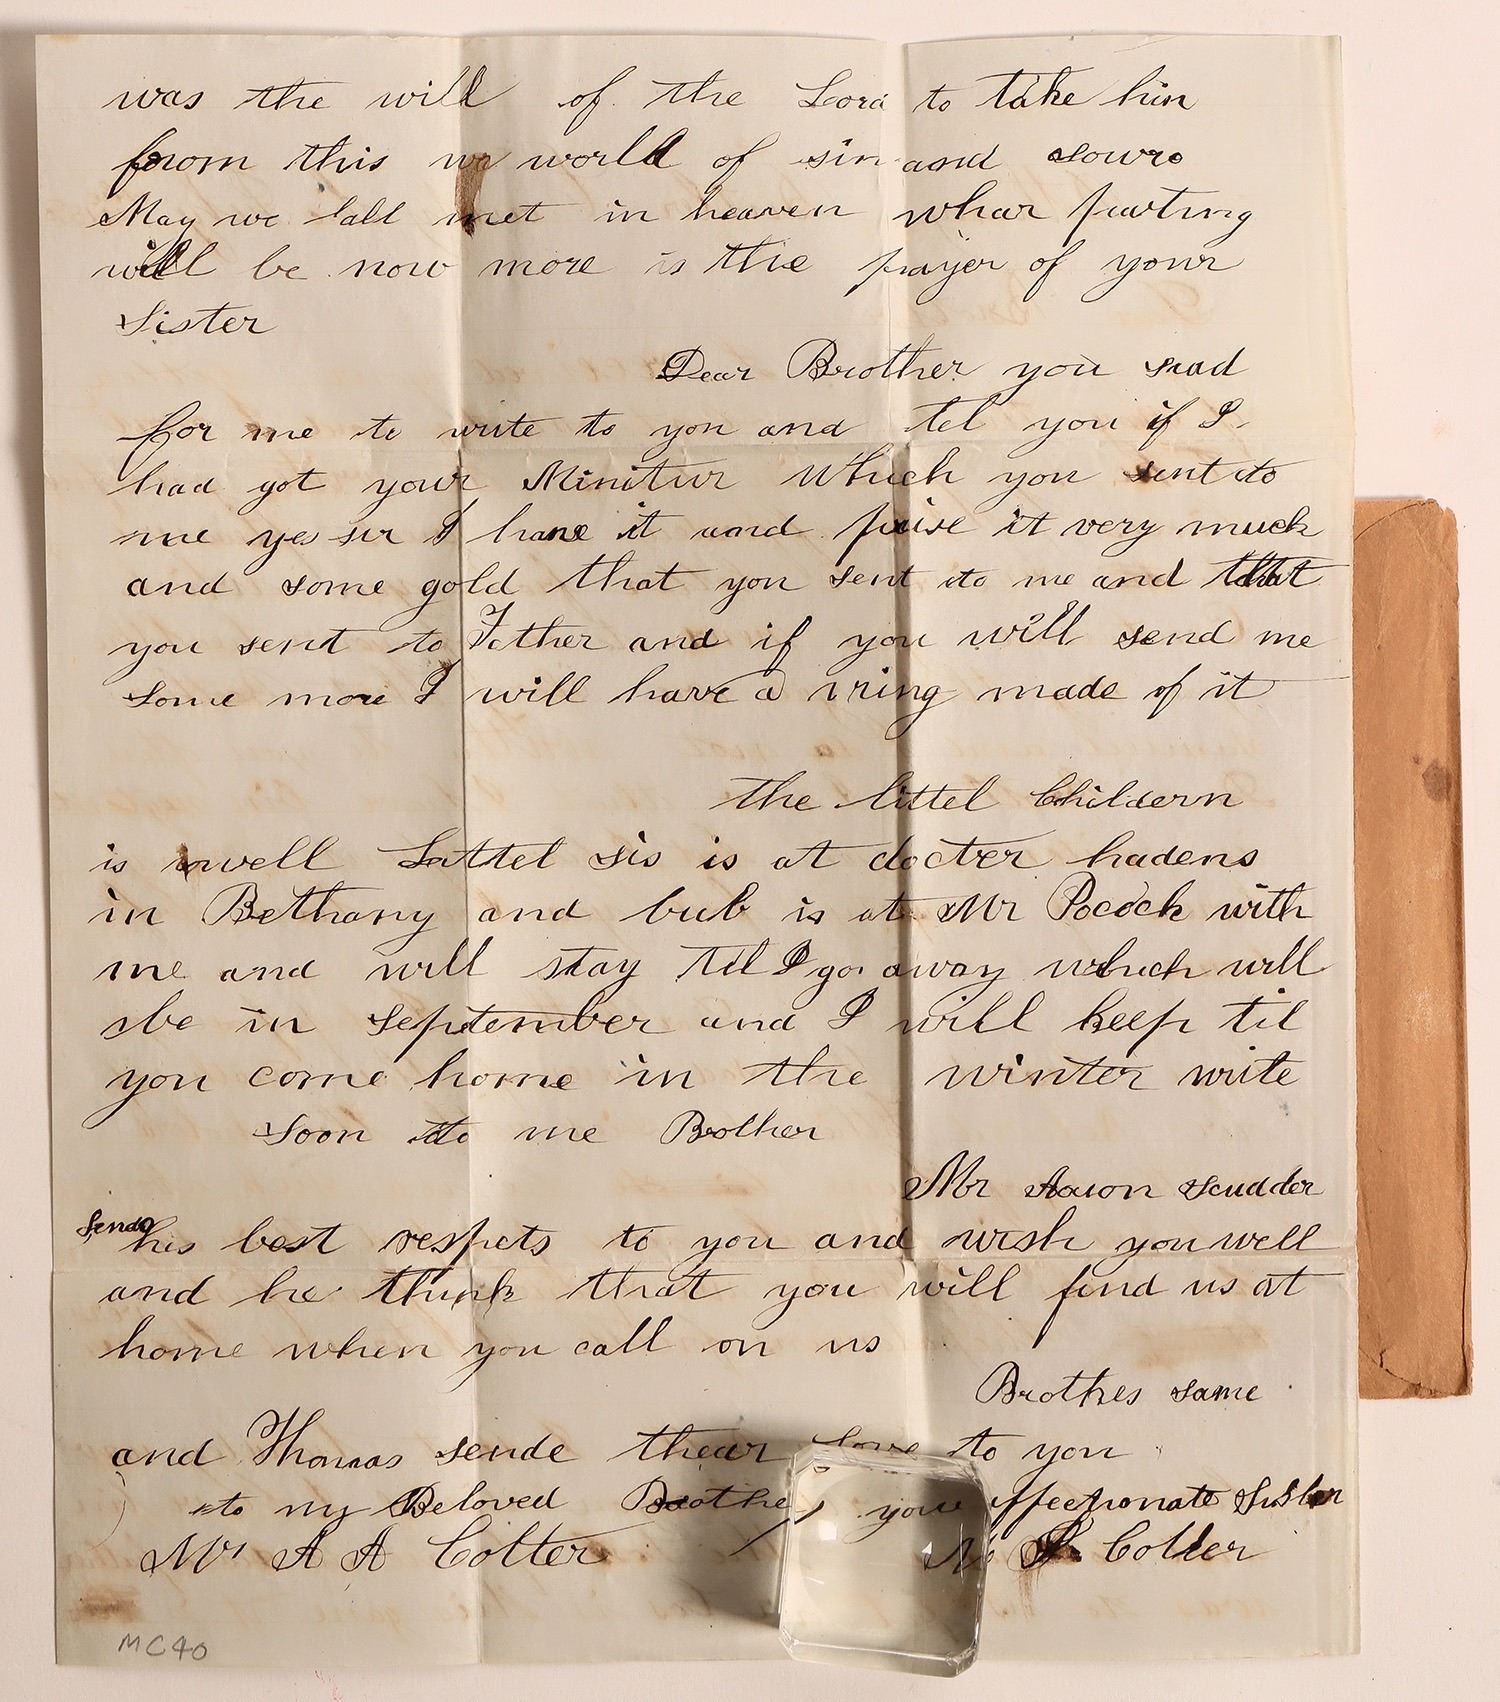 was the will of the Lord to take him
from this wo world of sin and sowro
May we all met in heaven whar parting
will be now more is the prayer of your
Sister
Dear Brother you siad
for me to write to you and tel you if I
had got your Minitur Which you sent to
me yes sir I have it and prise it very much
and some gold that you sent to me and that
you sent to Father and if you will send me
some more I will have a ring made of it
the littel Childern
is well Littel sis is at docter hadens
in Bethany and bub is at Mr Pocock with
me and will stay til I go away which will
be in september and I will keep til
you come home in the winter write
soon to me Brother
Mr Aaron Scudder
sends
his best respets to you and wish you well
and he think that you will find us at
home when you call on us
Brothes same
and Thomas sende thear love to you
to my Beloved Brother your affectionate Sister
Mr A A Colter M Colter
MC40